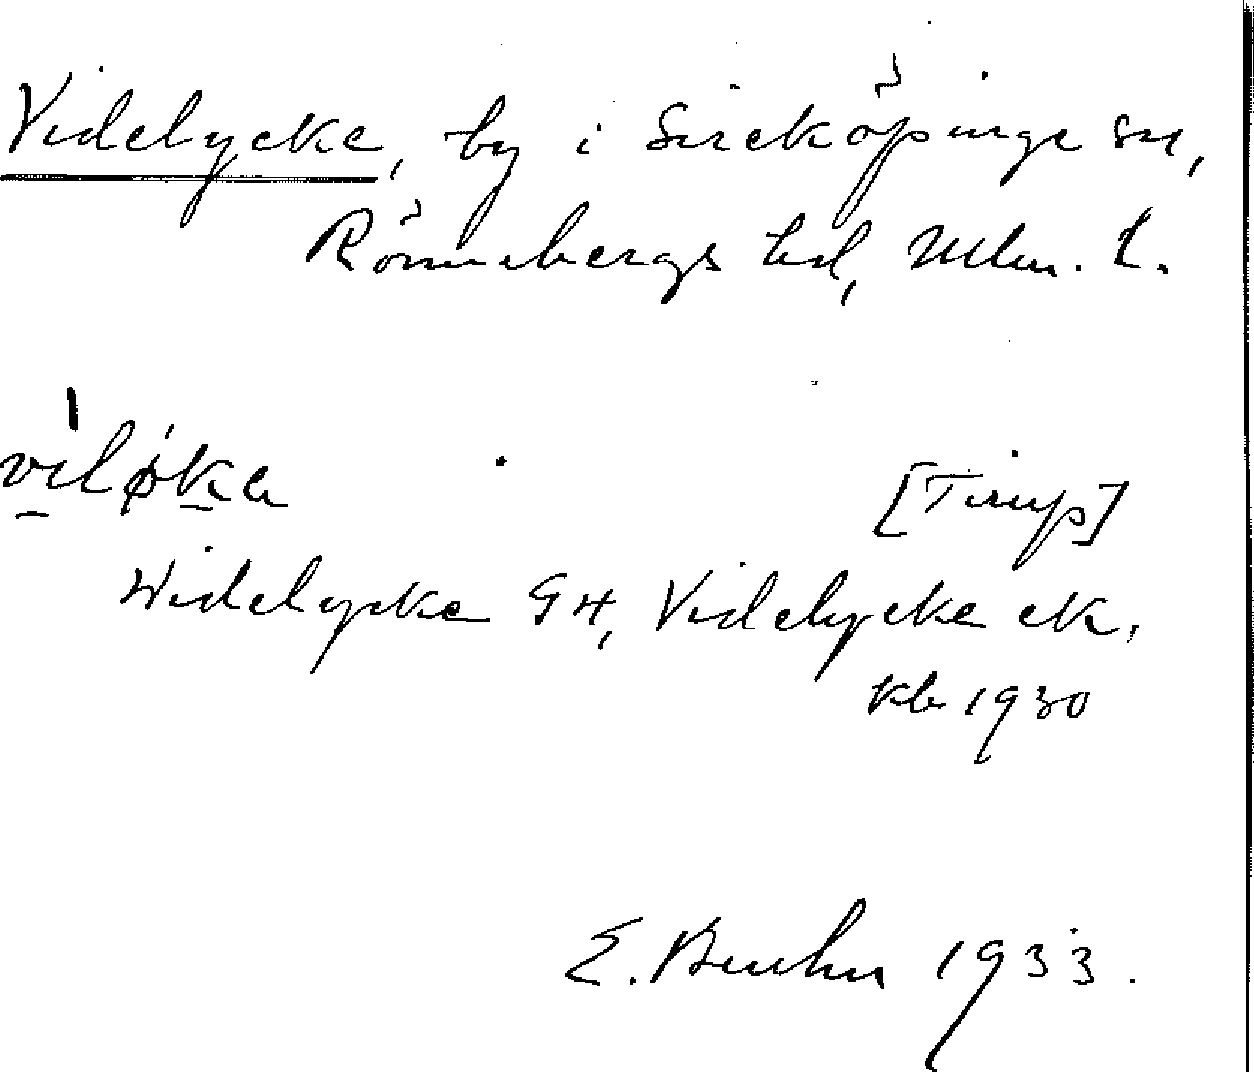 Videlycke, by i Sireköpinge sn,
Rönnebergs hd, Mlm. l.
viløka [Tirup]
Widelycke GH, Videlycke ek.
kb 1930
E. Bruhn 1933.